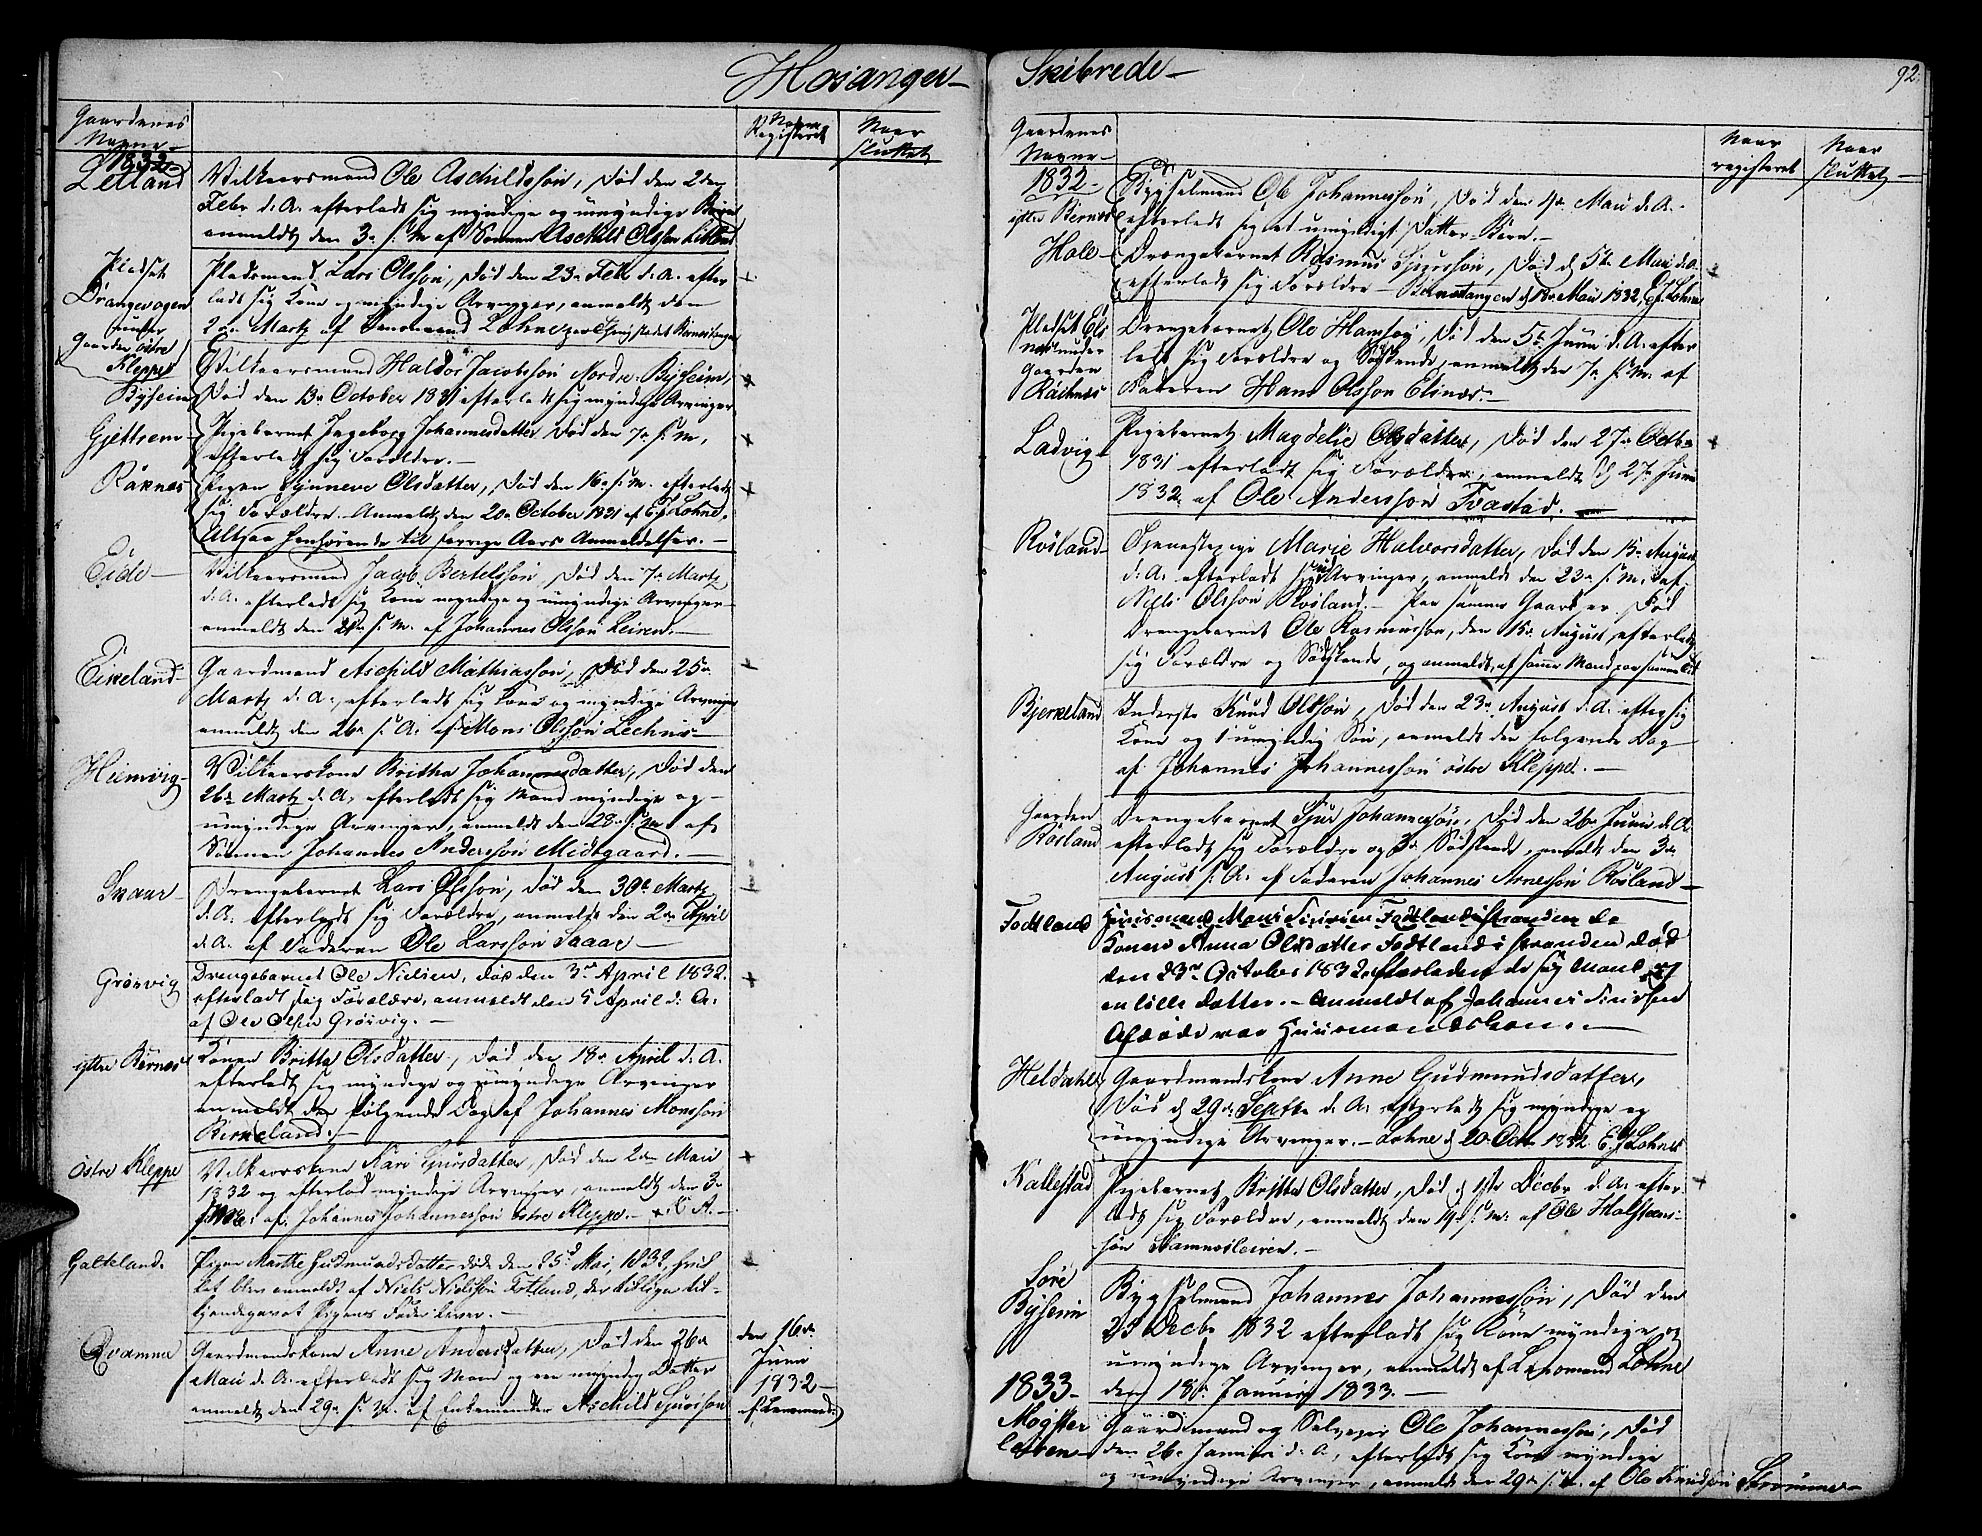 Hosanger Skibrede
92.
Gaardenes Navne
Naar Registeret
Naar sluttet
1832
Letland
Vilkaarsmand Ole Aschildssøn, død den 2den
Febr d. A. efterladt sig myndige og umyndige
anmeldt den 3de s. M. af Sønnen Aschild Olssøn Letland
Pladset
Drangevogen
under
Gaarden østre
Kleppe
Pladsmand Lars Olssøn, død den 23de Feb. d. A. efter
ladt sig Kone og myndige Arvinger, anmeldt den
2den Martz af Lensmand Lohne
Bysheim
Vilkaarsmand Haldor Jacobssøn Nordre Bysheim,
død den 13de October 1831 efterladt sig myndige Arvinger
Gjettrem
Pigebarnet Ingeborg Johannesdatter død den 7de s. M.,
efterladt sig Forældre.
Raknes
Pigen Synneve Olsdatter, død den 16de s. M. efterladt
sig Forældre. Anmeldt den 20de October 1831 af E J Lohne,
Altsaa henhørende til forrige Aars Anmeldelser.
Eide
Vilkaarsmand Jacob Bertelssøn død den 7de Martz
d. A. efterladt sig Kone myndige og umyndige Arvinger
anmeldt den s. M. af Johannes Olssøn Leiren.
Eikeland
Gaardmand Aschild Mathiassøn, død den 25de
Martz d. A., efterladt sig Kone og myndige Arvinger
anmeldt den 26de s. A. af Mons Olssøn Lechnes
Hiemvig
Vilkaarskone Britha Johannesdatter, død den
26de Martz d. A. efterladt sig Mand myndige og
umyndige Arvinger, anmeldt den 28de s. M. af
Sønnen Johannes Anderssøn Midtgaard.
Skaar
Drengebarnet Lars Olssøn, død den 30te Martz
d. A. efterladt sig Forældre, anmeldt den 2den April
d. A. af Faderen Ole Larssøn Skaar
Grøsvig
Drengebarnet Ole Nielsen, død den 3de April 1832.
efterladt sig Forældre, anmeldt den 5 April d. A.
af Ole Olsen Grøsvig.
ytre Bernes
Konen Britta Olsdatter, død den 18de April d. A.
efterladt sig myndige og umyndige Arvinger
anmeldt den følgende Dag af Johannes Monssøn
Birkeland.
østre Kleppe
Vilkaarskone Kari Sjursdatter, død den 2den Maii
1832 og efterlod myndige Arvinger, anmeldt den 3de
af Johannes Johannessøn østre Kleppe.
Galteland.
Pigen Marthe Gudmundsdatter døde den 25de Mai 1832, hvil
ket blev anmeldt af Niels Nielsøn Totland, der tillige til-
kjendegavet Pigens Fader lever.
Qvamme
Gaardmandskone Anne Andersdatter, død den 26de
Maii d. A. efterladt sig Mand og en myndig Datter
anmeldt den 29de s. M. af Enkemanden Aschild Sjurssøn
den 16de
Junii
1832
af Lensmand
Gaardenes Navne
Naar registeret
Naar sluttet
1832
ytre Bernes
Bygselmand Ole Johannessøn, død den 4de Maii d. A.
efterladt sig et umyndigt Datter-Børn.
Hole
Drengebarnet Rasmus Sjurssøn, død d 5te Maii d. A.
efterladt sig Forældre Bernestangen d 13de Maii 1832, E J Lohne
Pladset Els
næs under
Gaarden
Raknes
Drengebarnet Ole Hanssøn, død den 5te Junii d. A. efter
ladt sig Forældre og Sødskende, anmeldt den 7de s. M. af
Faderen Hans Olssøn Elsnæs.
Ladvig
Pigebarnet Magdelie Olsdatter, død den 27de Octbr
1831 efterladt sig Forældre, anmeldt d 27de Junii
1832 af Ole Anderssøn Tvastad.
Rosland
Tjenestepige Marie Halvorsdatter, død den 15de August
d. A. efterladt sig Arvinger, anmeldt den 23de s. M. af
Niels Olssøn Rosland. Paa samme Gaard er død
Drengebarnet Ole Rasmussøn, den 15de August, efterladt
sig Forældre og Sødskende, og anmeldt af samme Mand paa samme Tid
Bjerkeland
Inderste Knud Olssøn, død den 23de August d. A. efter sig
Kone og 1 umyndig Søn, anmeldt den følgende Dag
af Johannes Johannessøn østre Kleppe.
Gaarden
Røsland
Drengebarnet Sjur Johannessøn, død den 26de Junii d. A.
efterladt sig Forældre og 3de Sødskende, anmeldt den 3de
August s. A. af Faderen Johannes Arnessøn Røsland
Fodtland
Huusmand Mons Fodtlandsstranden de
Konen Anna Olsdatter Fodtlandsstranden død
den 23de October 1832 efterladen de sig Mand og
en lille Datter. Anmeldt af Johannes
Afdøde var Huusmandskone.
Heldahl
Gaardmandskone Anne Gudmundsdatter,
død d 29de Septbr d. A. efterladt sig myndige og
umyndige Arvinger. Lohne d 20 Octbr 1832 E J Lohne
Kallestad
Pigebarnet Britta Olsdatter, død d 1ste Decbr d. A. efter
ladt sig Forældre, anmeldt den 19de s. M. af Ole Halsteens
søn Stamnesleiren.
Søre
Bysheim
Bygselmand Johannes Johannessøn, død den
23 Decbr 1832 efterladt sig Kone myndige og
umyndige Arvinger, anmeldt af Lensmand Lohne
den 18de Januarii 1833.
1833
Møgster
leiren
Gaardmand og Selveier Ole Johannessøn, død
den 26de Januarii d. A, efterladt sig Kone myndige
og umyndige Arvinger, anmeldt den 29de s. M. af Ole Knudssøn Strømme